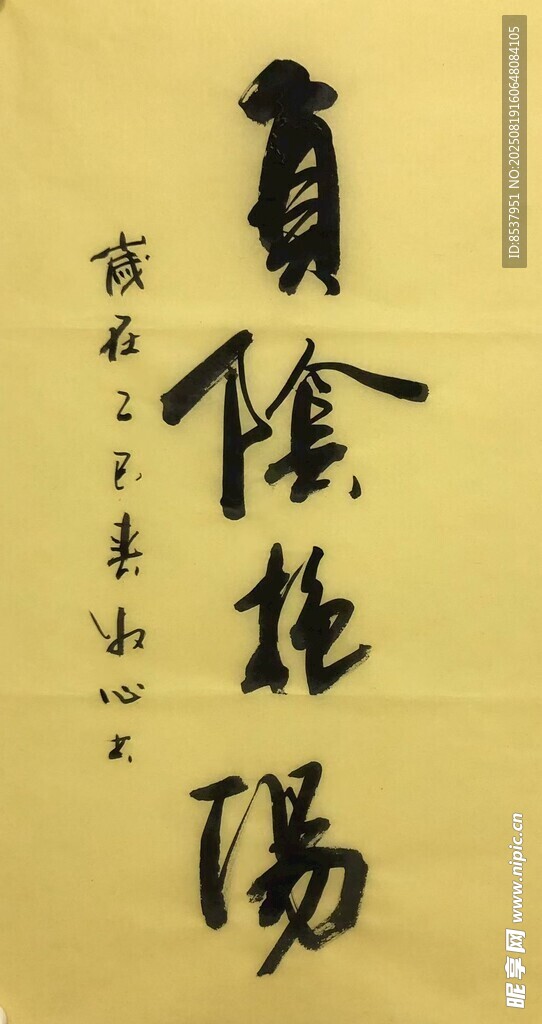 負陰抱陽
歲在乙巳春
心书
ID:8537951 NO:20250819160648084105
昵享网 www.nipic.cn